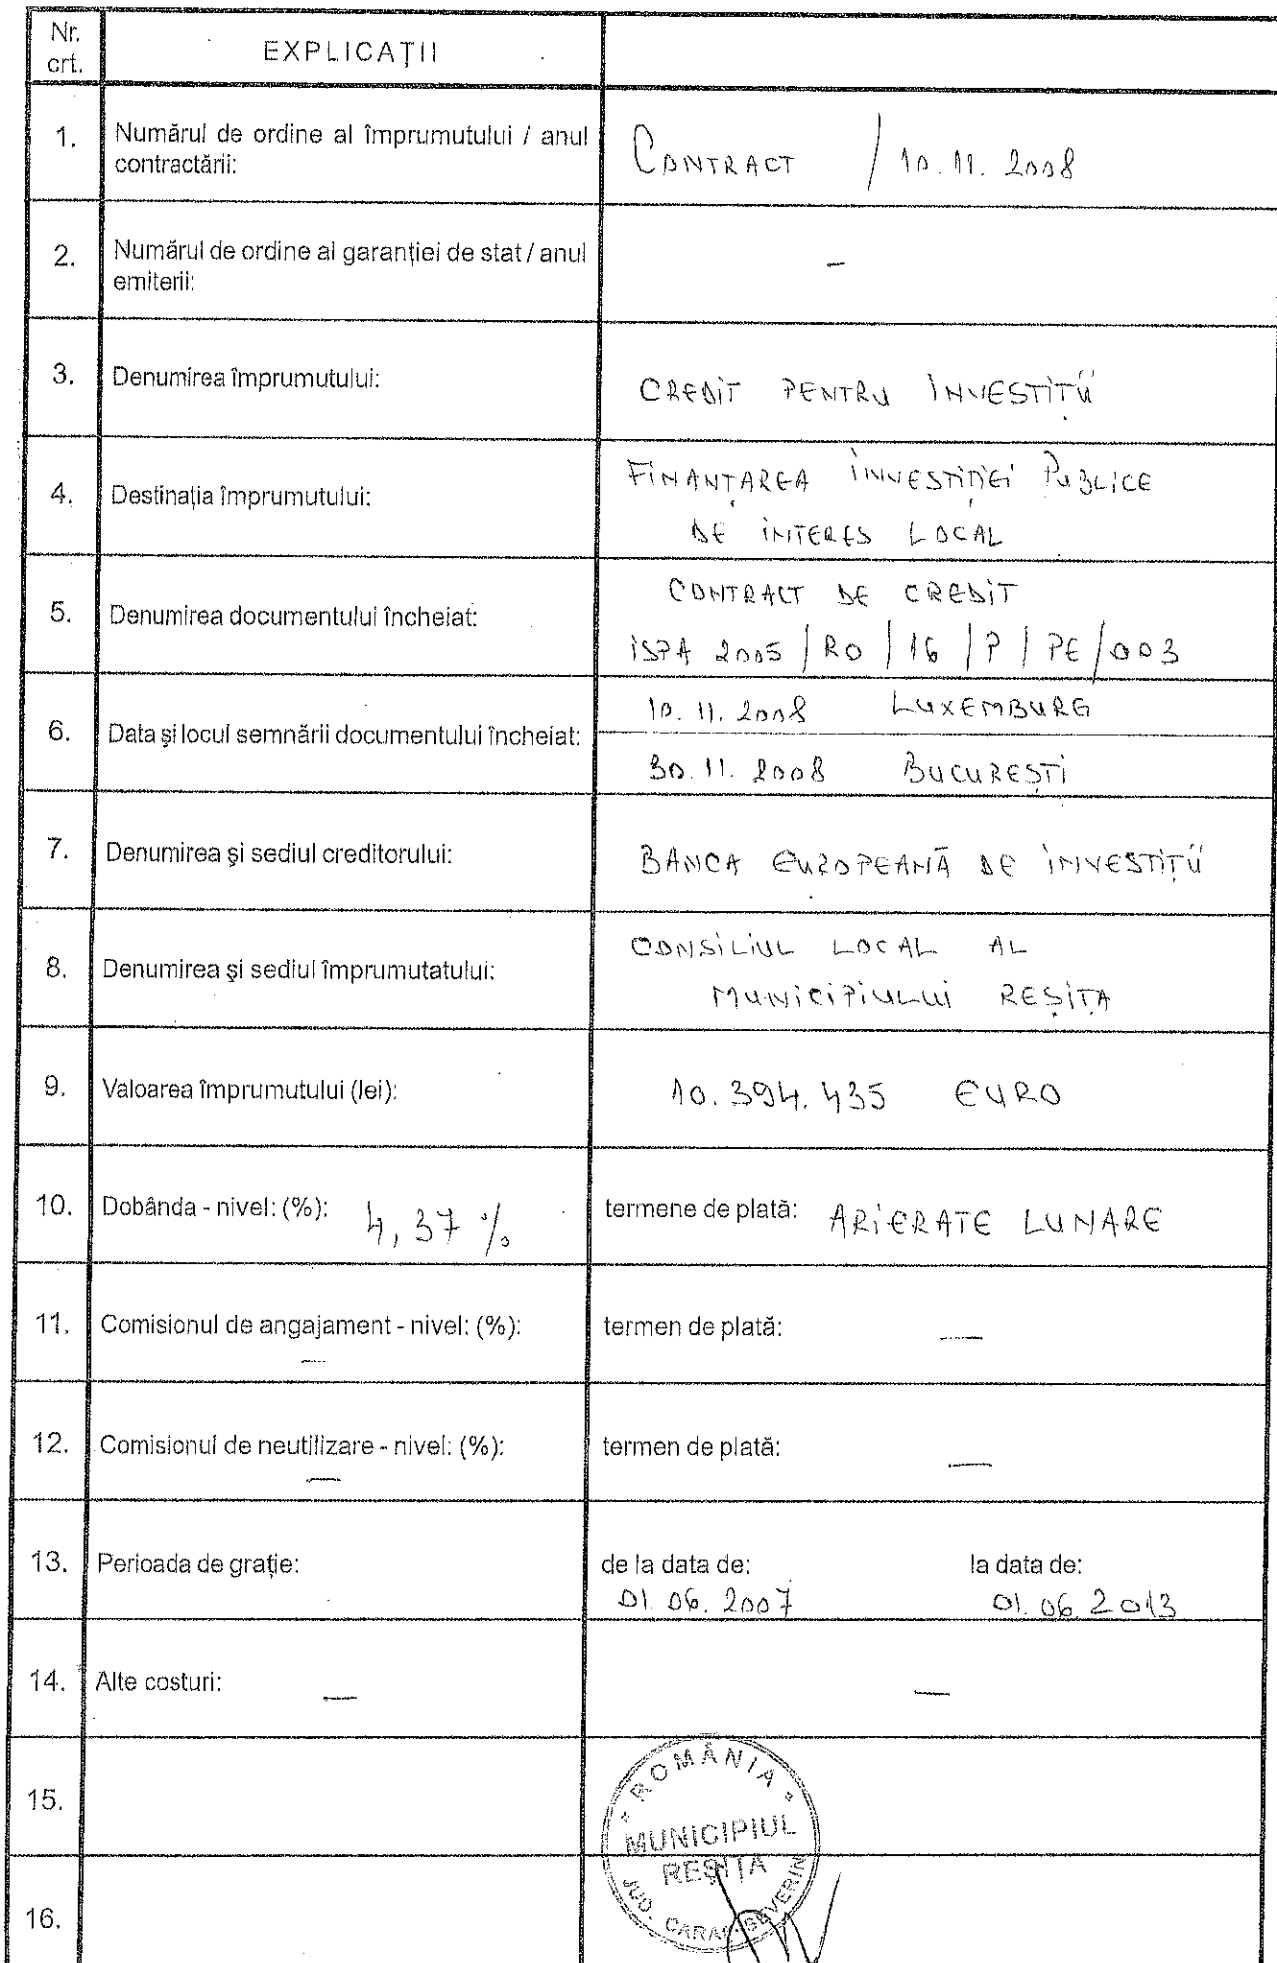 Nr. crt.
EXPLICAȚII
1.
Numărul de ordine al împrumutului / anul
contractării:
CONTRACT / 10.11.2008
2.
Numărul de ordine al garanției de stat / anul
emiterii:
-
3.
Denumirea împrumutului:
CREDIT PENTRU INVESTIȚII
4.
Destinația împrumutului:
FINANȚAREA INVESTIȚIEI PUBLICE
DE INTERES LOCAL
5.
Denumirea documentului încheiat:
CONTRACT DE CREDIT
ISPA 2005 / RO / 16 / P / PE / 003
6.
Data și locul semnării documentului încheiat:
10.11.2008 LUXEMBURG
30.11.2008 BUCUREȘTI
7.
Denumirea și sediul creditorului:
BANCA EUROPEANĂ DE INVESTIȚII
8.
Denumirea și sediul împrumutatului:
CONSILIUL LOCAL AL
MUNICIPIULUI REȘIȚA
9.
Valoarea împrumutului (lei):
10.394.435 EURO
10.
Dobânda - nivel: (%): 4,37 %
termene de plată: ARIERATE LUNARE
11.
Comisionul de angajament - nivel: (%):
—
termen de plată: —
12.
Comisionul de neutilizare - nivel: (%):
—
termen de plată: —
13.
Perioada de grație:
de la data de: la data de:
01.06.2007 01.06.2013
14.
Alte costuri: —
—
15.
16.
ROMÂNIA
MUNICIPIUL
REȘIȚA
JUD. CARAȘ-SEVERIN